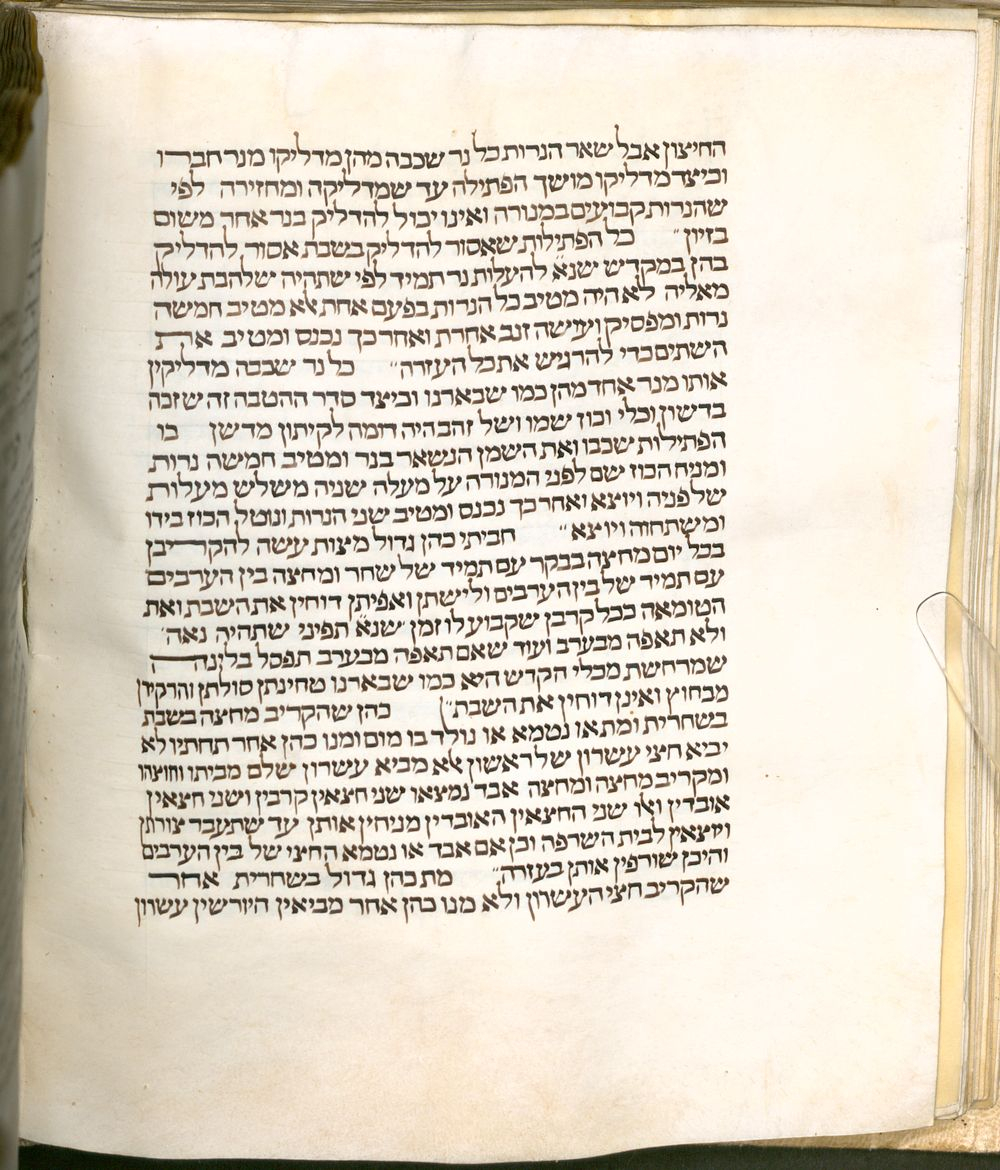 החיצון אבל שאר הנרות כל נר שכבה מהן מדליקו מנר חברו
וכיצד מדליקו מושך הפתילה עד שמדליקה ומחזירה לפי
שהנרות קבועים במנורה ואינו יכול להדליק בנר אחר משום
בזיון״ כל הפתילות שאסור להדליק בשבת אסור להדליק
בהן במקדש שנא׳ להעלות נר תמיד לפי שתהיה שלהבת עולה
מאליה לא היה מטיב כל הנרות בפעם אחת אלא מטיב חמשה
נרות ומפסיק ועושה זנב אחרת ואחר כך נכנס ומטיב את
השתים כדי להרגיש את כל העזרה״ כל נר שכבה מדליקין
אותו מנר אחד מהן כמו שבארנו וכיצד סדר ההטבה זה שזכה
בדשון וכלי וכוז שמו ושל זהב היה דומה לקיתון מדשן בו
הפתילות שכבו ואת השמן הנשאר בנר ומטיב חמישה נרות
ומניח הכוז שם לפני המנורה על מעלה שניה משלש מעלות
שלפניה ויוצא ואחר כך נכנס ומטיב שני הנרות ונוטל הכוז בידו
ומשתחוה ויוצא״ חביתי כהן גדול מצות עשה להקריבן
בכל יום מחצה בבקר עם תמיד של שחר ומחצה בין הערבים
עם תמיד של בין הערבים ולישתן ואפיתן דוחין את השבת ואת
הטומאה ככל קרבן שקבוע לו זמן שנא׳ תפיני שתהיה נאה
ולא תאפה מבערב ועוד שאם תאפה מבערב תפסל בלינה
שמרחשת מכלי הקדש היא כמו שבארנו טחינתן סולתן והרקידן
מבחוץ ואינן דוחין את השבת״ כהן שהקריב מחצה בשבת
בשחרית ומת או נטמא או נולד בו מום ומנו כהן אחר תחתיו לא
יביא חצי עשרון של ראשון אלא מביא עשרון שלם מביתו וחוצהו
ומקריב מחצה ומחצה אבד נמצאו שני חצאין קרבין ושני חצאין
אובדין ואלו שני החצאין האובדין מניחין אותן עד שתעבר צורתן
ויוצאין לבית השרפה וכן אם אבד או נטמא החצי של בין הערבים
והיכן שורפין אותן בעזרה״ מת כהן גדול בשחרית אחר
שהקריב חצי העשרון ולא מנו כהן אחר מביאין היורשין עשרון